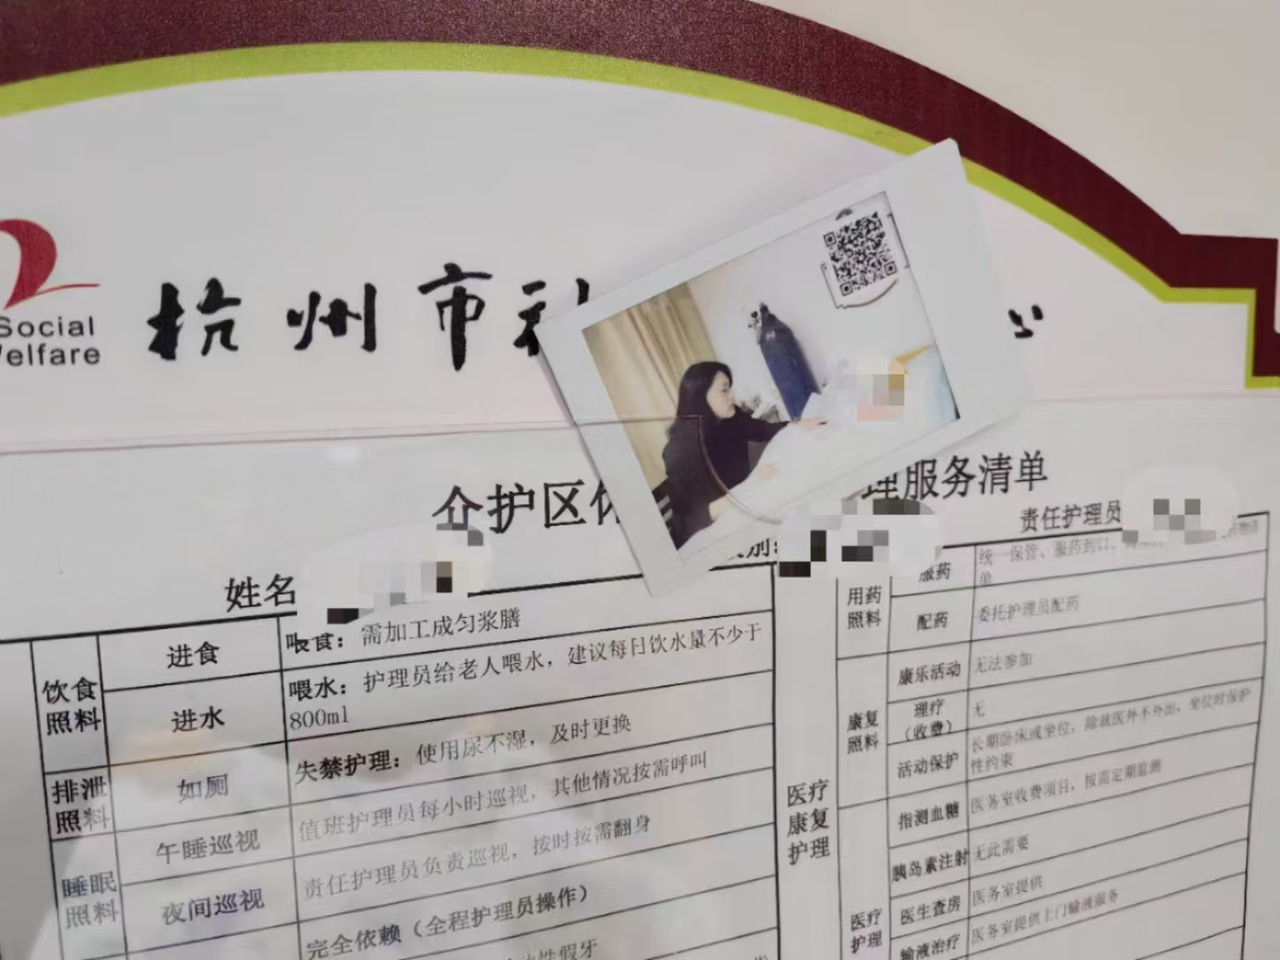 Social
Welfare
杭州市社
心
介护区
理服务清单
姓名
责任护理员
饮食照料
进食
喂食：需加工成匀浆膳
进水
喂水：护理员给老人喂水，建议每日饮水量不少于
800ml
排泄照料
如厕
失禁护理：使用尿不湿，及时更换
睡眠照料
午睡巡视
值班护理员每小时巡视，其他情况按需呼叫
夜间巡视
责任护理员负责巡视，按时按需翻身
完全依赖（全程护理员操作）
性假牙
医疗康复护理
用药照料
服药
统一保管、服药到口、
单
配药
委托护理员配药
康复照料
康乐活动
无法参加
理疗（收费）
无
活动保护
长期卧床或坐位，除就医外不外出，坐位时保护
性约束
医疗护理
指测血糖
医务室收费项目，按需定期监测
胰岛素注射
无此需要
医生查房
医务室提供
输液治疗
医务室提供上门输液服务